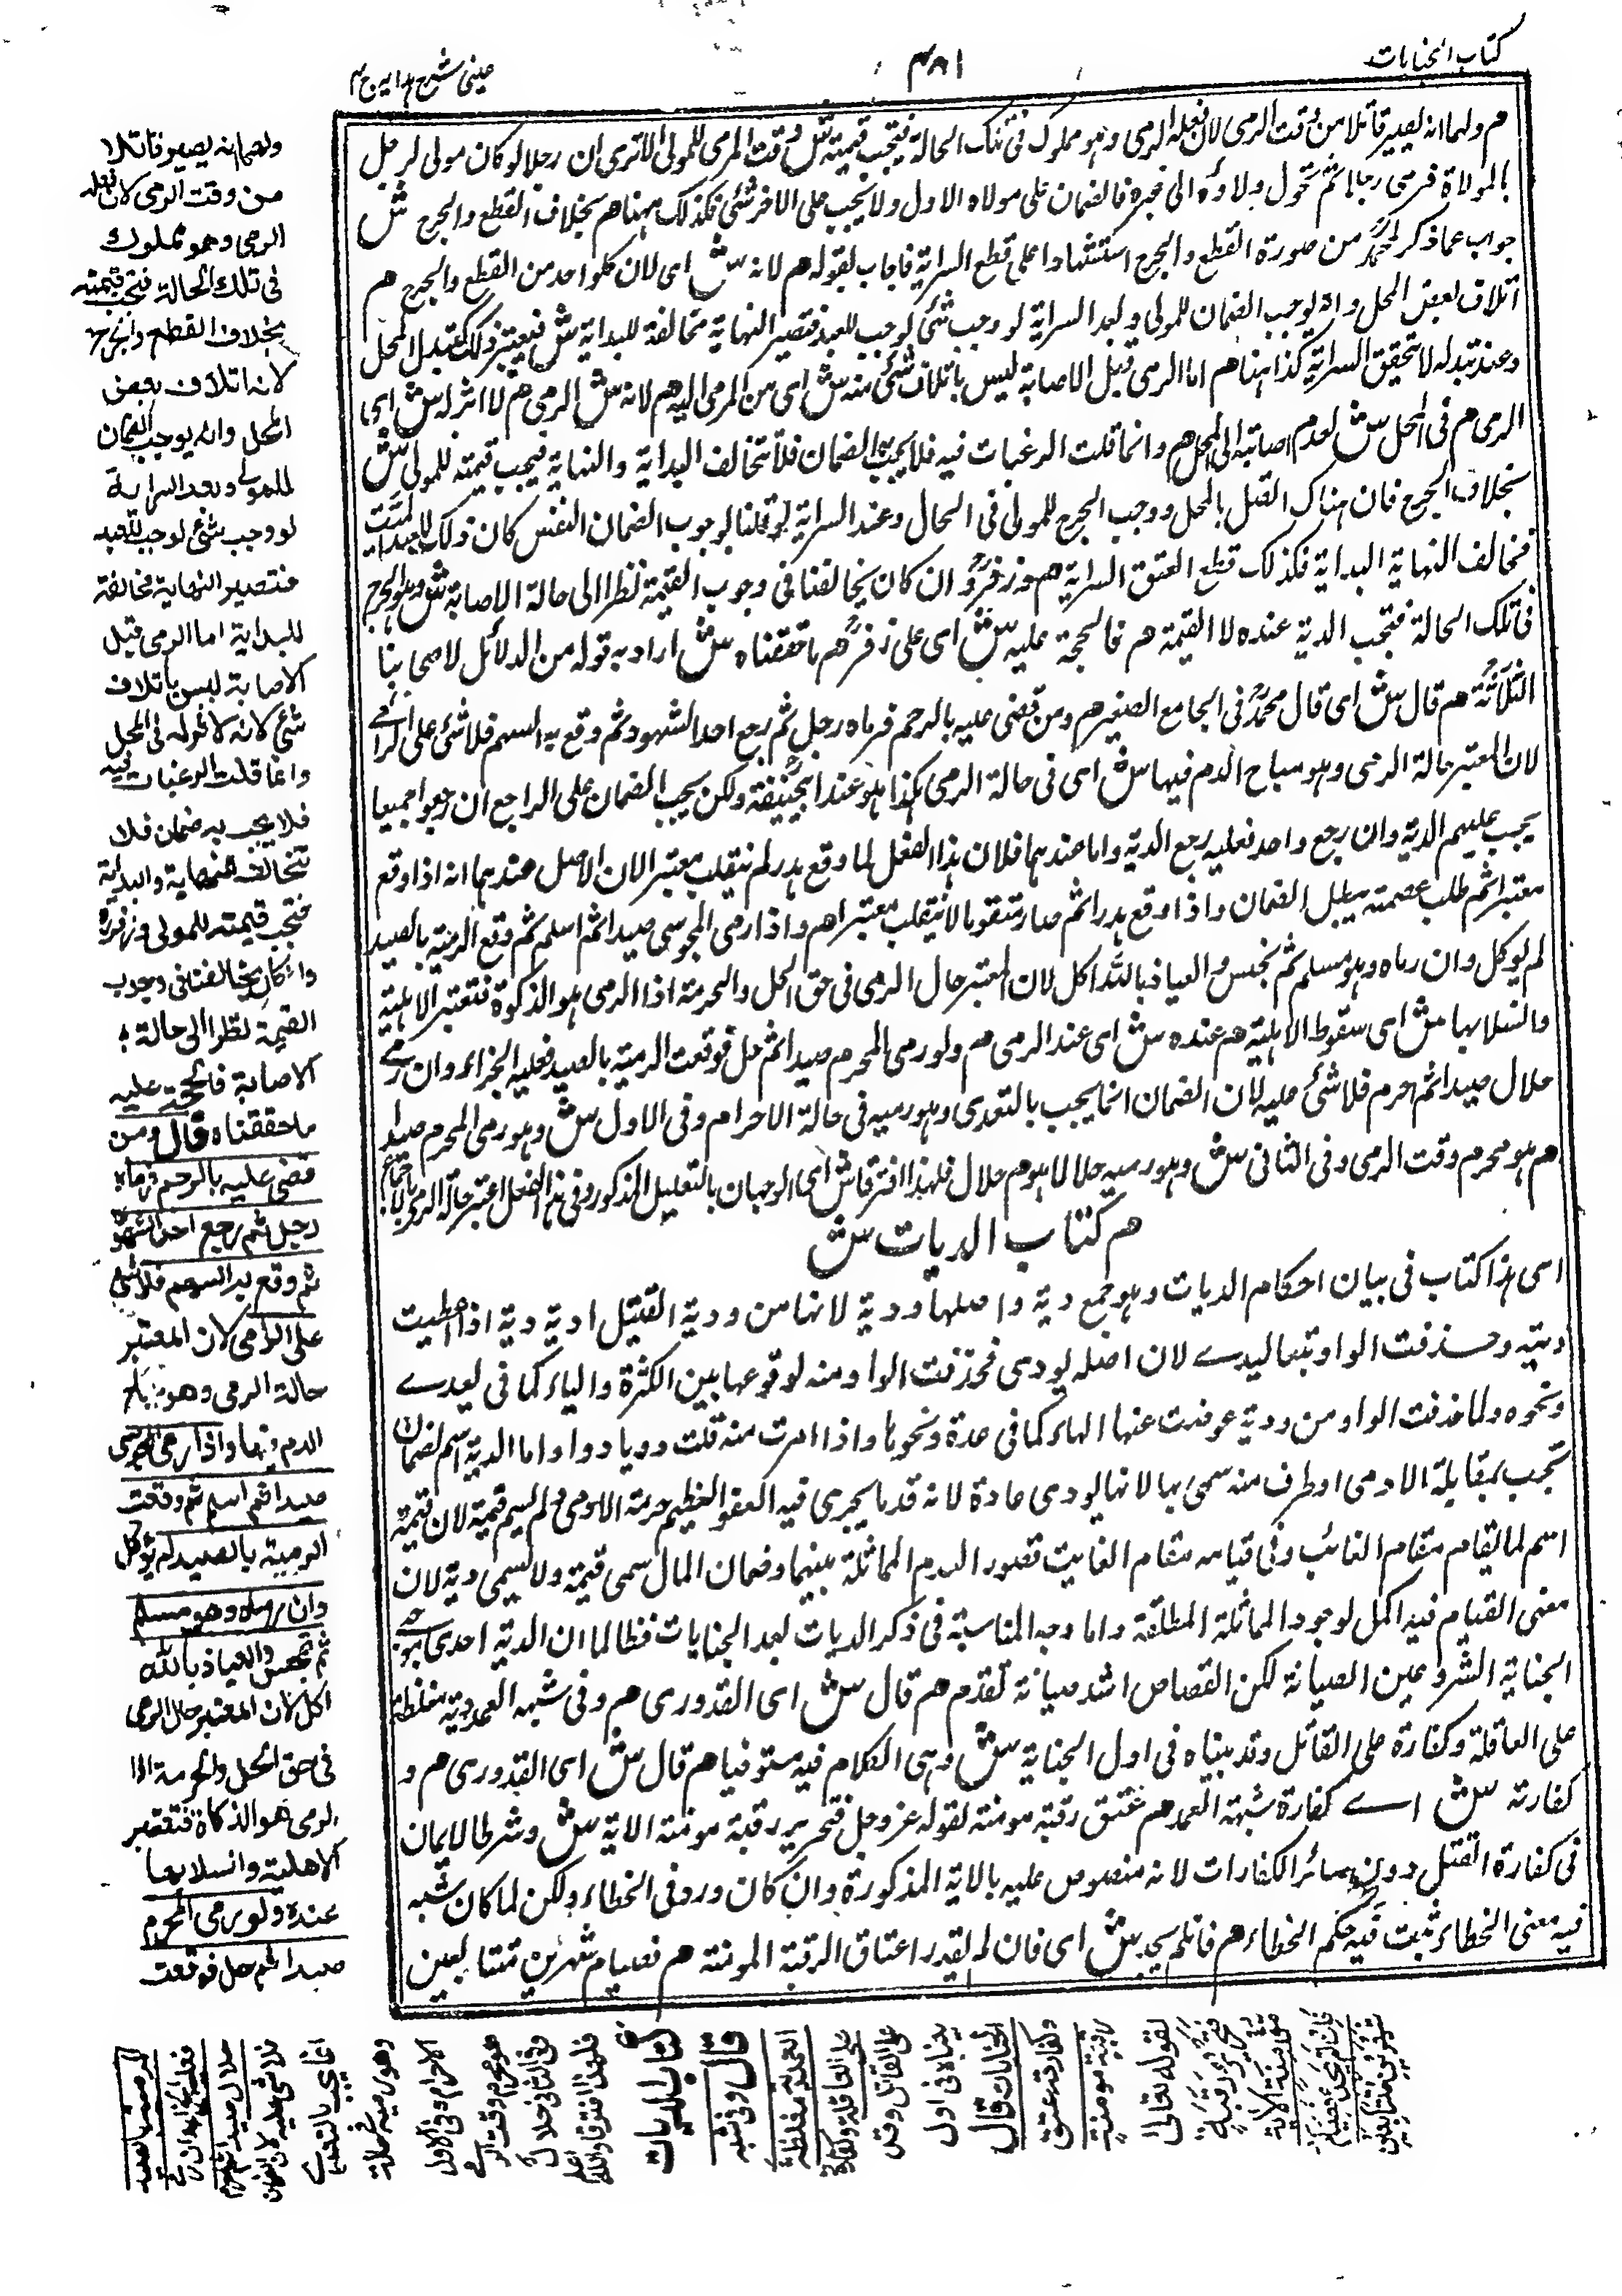 كتاب الجنايات
٤٨١
عینی شرح ہدایہ ج ٤
م ولهما انه يصير قاتلا من وقت الرمى لان فعله الرمى وهو مملوك فى تلك الحالة فتجب قيمته ش وقت الرمى للمولى الا ترى ان رجلا لو كان مولى لرجل
بالموالاة فرمى رجلا ثم تحول ولاؤه الى غيره فالضمان على مولاه الاول ولا يجب على الاخر شئ فكذلك ههنا هم بخلاف القطع والجرح ش
جواب عما ذكر محمد من صورة القطع والجرح استشهادا على قطع السراية فاجاب بقوله هم لانه ش اى لان كلواحد من القطع والجرح هم
اتلاف بعض المحل وانه يوجب الضمان للمولى وبعد السراية لو وجب شئ لوجب للعبد فتصير النهاية مخالفة للبداية ش فيعتبر ذلك كتبدل المحل
وعند تبدله لا تتحقق السراية كذا ههنا هم اما الرمى قبل الاصابة ليس باتلاف شئ منه ش اى من المرمى اليه هم لانه ش الرمى هم لا اثر له ش اى
الرمى هم فى المحل ش لعدم اصابته الى المحل هم وانما قلت الرغبات فيه فلا يجب به الضمان فلا تتخالف البداية والنهاية فيجب قيمته للمولى ش
بخلاف الجرح فان هناك القتل بالمحل ووجب الجرح للمولى فى الحال وعند السراية لو قلنا بوجوب الضمان النفس كان ذلك للعبد
فخالف النهاية البداية فكذلك قطع العتق السراية هم وزفر وان كان يخالفنا فى وجوب القيمة نظرا الى حالة الاصابة ش وهو الحرج
فى تلك الحالة فتجب الدية عنده لا القيمة هم فالحجة عليه ش اى على زفر هم ما حققناه ش اراد به قوله من الدلائل لاصحابنا
الثلاثة هم قال ش اى قال محمد فى الجامع الصغير هم ومن قضى عليه بالرجم فرماه رجل ثم رجع احد الشهود ثم وقع به السهم فلا شئ على الرامى
لان المعتبر حالة الرمى وهو مباح الدم فيها ش اى فى حالة الرمى هكذا هو عند ابى حنيفة ولكن يجب الضمان على الراجع ان رجعوا جميعا
يجب عليهم الدية وان رجع واحد فعليه ربع الدية واما عندهما فلان هذا الفعل لما وقع هدر لم ينقلب معتبر الان الاصل عندهما انه اذا وقع
معتبرا ثم طلب عصمته يبطل الضمان واذا وقع هدرا ثم صار متقوما لا ينقلب معتبرا هم واذا رمى المجوسى صيدا ثم اسلم ثم وقع الرمية بالصيد
لم يوكل وان رماه وهو مسلم ثم تمجس والعياذ بالله اكل لان المعتبر حال الرمى فى حق الحل والحرمة اذا الرمى هو الذكوة فتعتبر الاهلية
وانسلابها ش اى سقوط الاهلية هم عنده ش اى عند الرمى هم ولو رمى المحرم صيدا ثم حل فوقعت الرمية بالصيد فعليه الجزاء وان رمى
حلال صيدا ثم احرم فلا شئ عليه لان الضمان انما يجب بالتعدى وهو رميه فى حالة الاحرام وفى الاول ش وهو رمى المحرم صيدا
هم هو محرم وقت الرمى وفى الثانى ش وهو رميه حلالا هو هم حلال فلهذا افترقا ش اى الوجهان بالتعليل المذكور وفى هذا الفعل اعتبر حالة الرمى
م كتاب الديات ش
اى هذا كتاب فى بيان احكام الديات وهو جمع دية واصلها ودية لانها من ودية القتيل اديه دية اذا اعطيت
ديته وحذفت الواو تبعا ليدى لان اصله يودى فحذفت الواو منه لوقوعها بين الكسرة والياء كما فى يعدى
ونحوه ولما حذفت الواو من ودية عوضت عنها الهاء كما فى عدة ونحوها واذا امرت منه قلت د ويا دوا واما الدية اسم لضمان
تجب بمقابلة الادمى او طرف منه سمى بها لانها يودى عادة لانه قد ما يجرى فيه العفو العظيم حرمة الادمى ولم يسم قيمة لان قيمة
اسم لما يقام مقام الفائت وفى قيامه مقام الفايت قصور العدم المماثلة بينهما وضمان المال سمى قيمة ولا يسمى دية لان
معنى القيام فيه اكمل لوجود المماثلة المطلقة واما وجه المناسبة فى ذكر الديات بعد الجنايات فظ لما ان الدية احدى موجبى
الجناية المشروعين الصيانة لكن القصاص اشد صيانة تقدم هم قال ش اى القدورى هم وفى شبه العمد دية مغلظة
على العاقلة وكفارة على القاتل وقد بيناه فى اول الجناية ش وهى الكلام فيه مستوفيا هم قال ش اى القدورى هم و
كفارته ش اى كفارة شبهة العمد هم عتق رقبة مومنة لقوله عز وجل فتحرير رقبة مومنة الاية ش وشرط الايمان
فى كفارة القتل دون سائر الكفارات لانه منصوص عليه بالاية المذكورة وان كان ورد فى الخطاء ولكن لما كان شبه
فيه معنى الخطاء ثبت فيه حكم الخطاء هم فان لم يجد ش اى فان لم يقدر اعتاق الرقبة المومنة هم فصيام شهرين متتابعين
ولهما انه يصير قاتلا
من وقت الرمى لان فعله
الرمى وهو مملوك
فى تلك الحالة فتجب قيمته
بخلاف القطع والجرح
لانه اتلاف بعض
المحل وانه يوجب الضمان
للمولى وبعد السراية
لو وجب شئ لوجب للعبد
فتصير النهاية مخالفة
للبداية اما الرمى قبل
الاصابة ليس باتلاف
شئ لانه لا اثر له فى المحل
وانما قلت الرغبات فيه
فلا يجب به ضمان فلا
تتخالف النهاية والبداية
فتجب قيمته للمولى وزفر
وان كان يخالفنا فى وجوب
القيمة نظرا الى حالة
الاصابة فالحجة عليه
ما حققناه قال ومن
قضى عليه بالرجم فرماه
رجل ثم رجع احد الشهود
ثم وقع به السهم فلا شئ
على الرامى لان المعتبر
حالة الرمى وهو مباح
الدم فيها واذا رمى المجوسى
صيدا ثم اسلم ثم وقعت
الرمية بالصيد لم يؤكل
وان رماه وهو مسلم
ثم تمجس والعياذ بالله
اكل لان المعتبر حال الرمى
فى حق الحل والحرمة اذا
الرمى هو الذكاة فتعتبر
الاهلية وانسلابها
عنده ولو رمى المحرم
صيدا ثم حل فوقعت
الرمية بالصيد
فعليه الجزاء وان رمى
حلال صيدا ثم احرم
فلا شئ عليه لان الضمان
انما يجب بالتعدى
وهو رميه فى حالة
الاحرام وفى الاول
هو محرم وقت الرمى
وفى الثانى حلال
فلهذا افترقا والله اعلم
كتاب الديات
قال وفى شبه
العمد دية مغلظة
على العاقلة وكفارة
على القاتل وقد
بيناه فى اول
الجنايات قال
وكفارته عتق
رقبة مومنة
لقوله تعالى
فتحرير رقبة
مؤمنة الاية
فان لم يجد فصيام
شهرين متتابعين